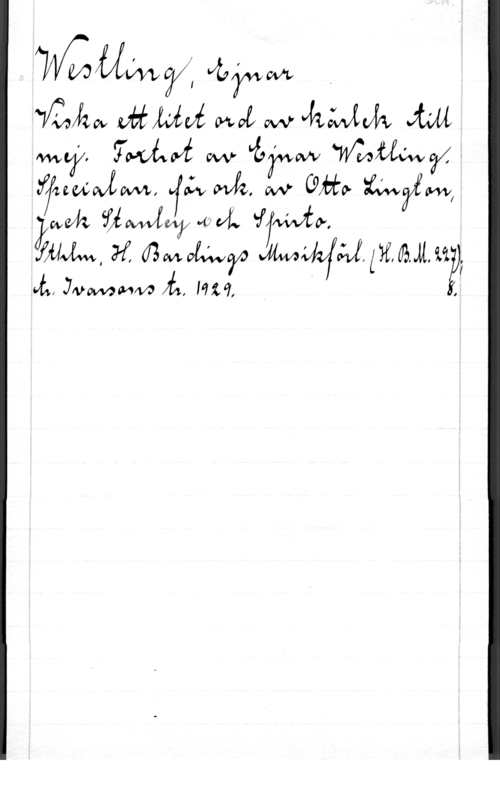 Westling, Ejnar
Viska ett litet ord av kärlek till
mej. Foxtrot av Ejnar Westling.
Specialarr. för ork. av Otto Lington,
Jack Stanley och Spirto.
Sthlm, H. Bardings Musikförl. (H.B.M. 227),
tr. Ivarsons tr. 1929. 8.